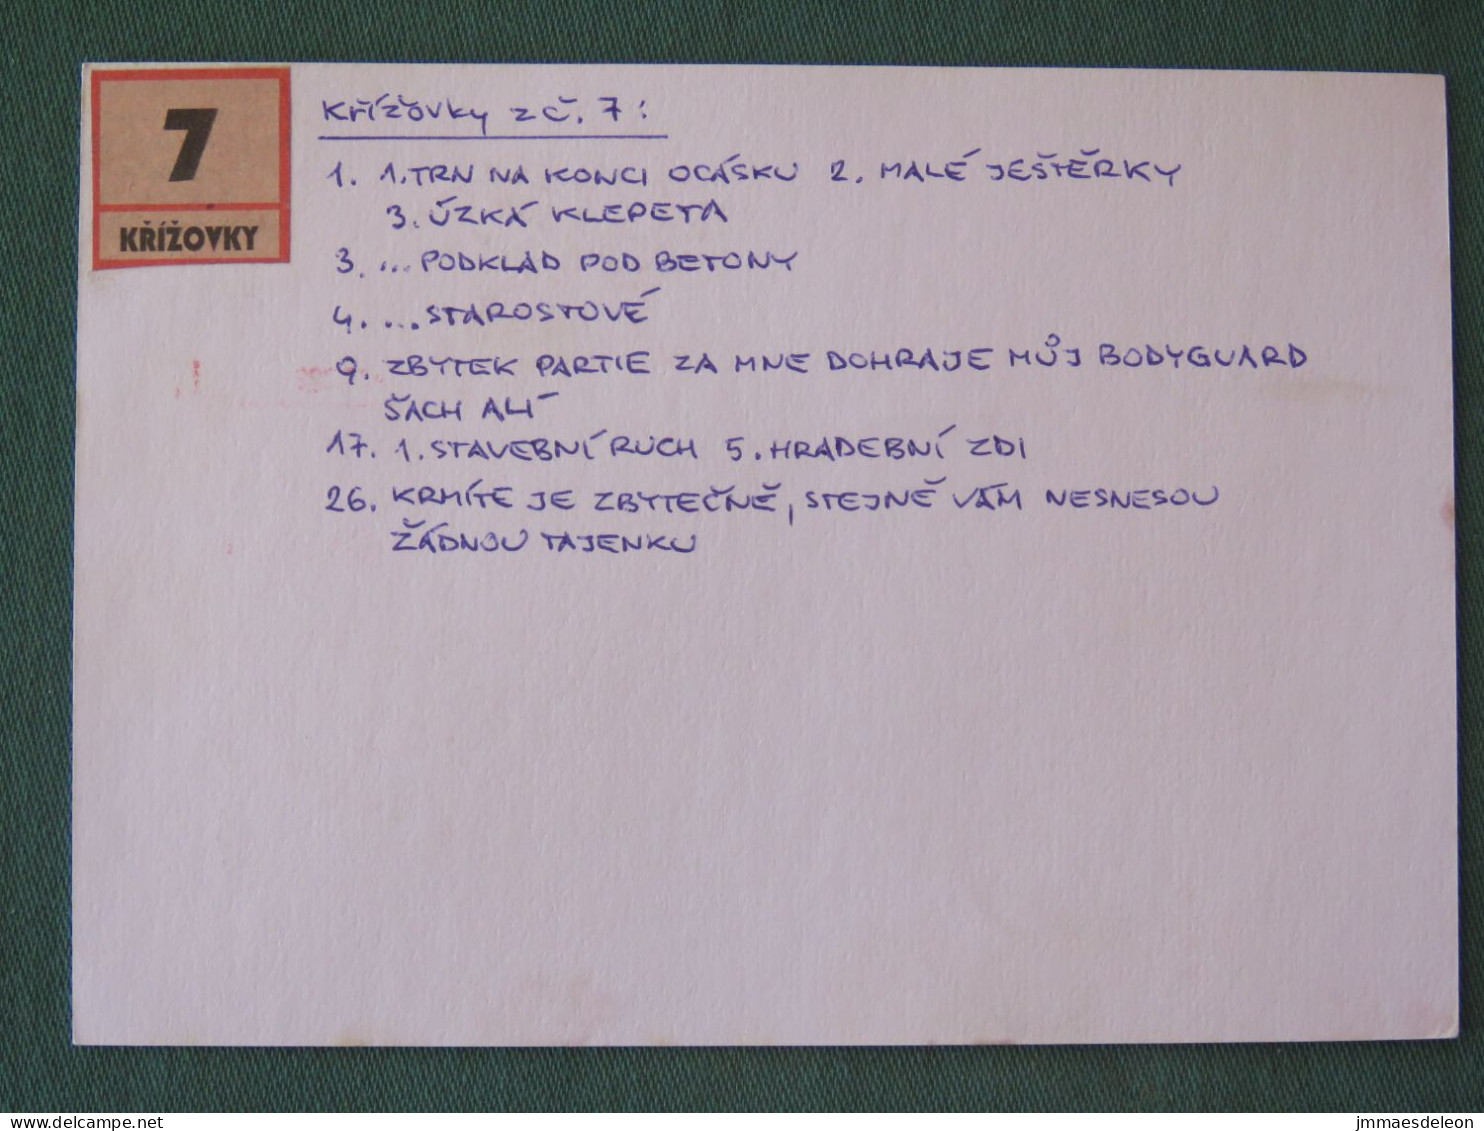 7
KŘÍŽOVKY
Křížovky z č. 7:
1. 1. TRN NA KONCI OCÁSKU 2. MALÉ JEŠTĚRKY
3. ÚZKÁ KLEPETA
3. ...PODKLAD POD BETONY
4. ...STAROSTOVÉ
9. ZBYTEK PARTIE ZA MNE DOHRAJE MŮJ BODYGUARD
ŠACH ALÍ
17. 1. STAVEBNÍ RUCH 5. HRADEBNÍ ZDI
26. KRMÍTE JE ZBYTEČNĚ, STEJNĚ VÁM NESNESOU
ŽÁDNOU TAJENKU
www.delcampe.net
jmmaesdeleon